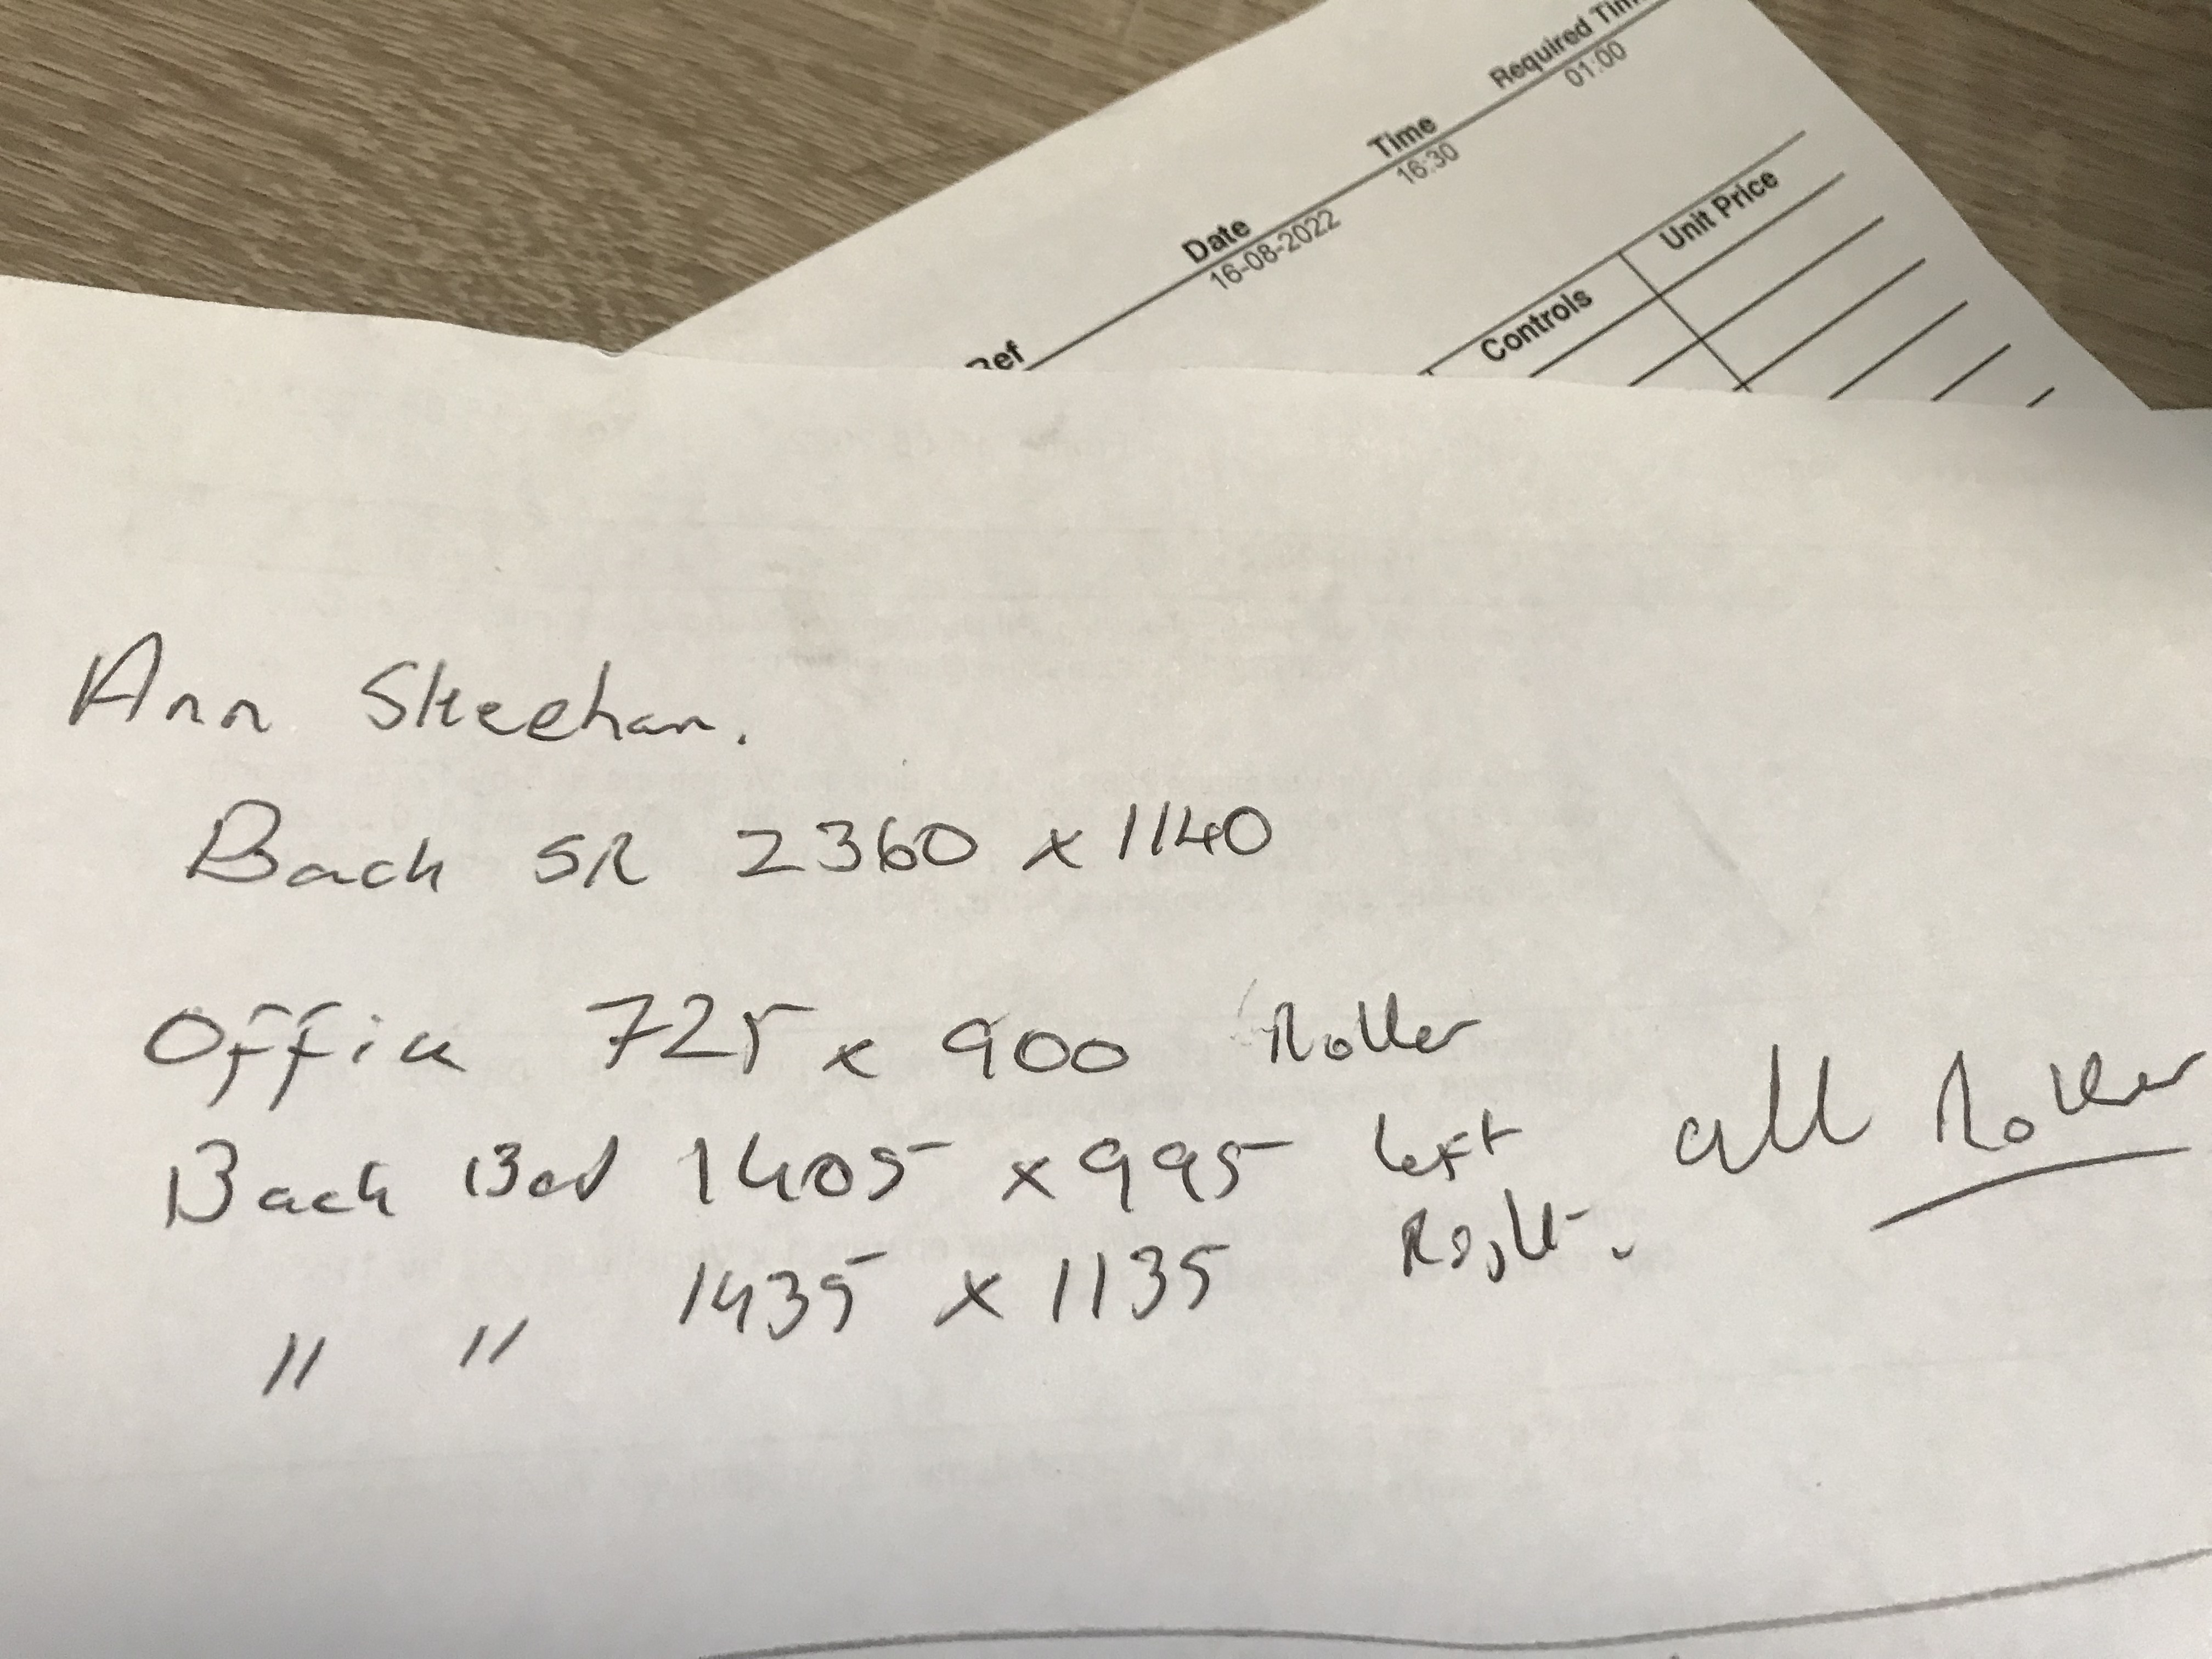 Required Tim
01:00
Time
16:30
Date
16-08-2022
Ref
Unit Price
Controls
Ann Sheehan.
Back SR 2360 x 1140
Office 725 x 900 Roller
Back Bed 1405 x 995 left
" " 1435 x 1135 Right.
all Roller